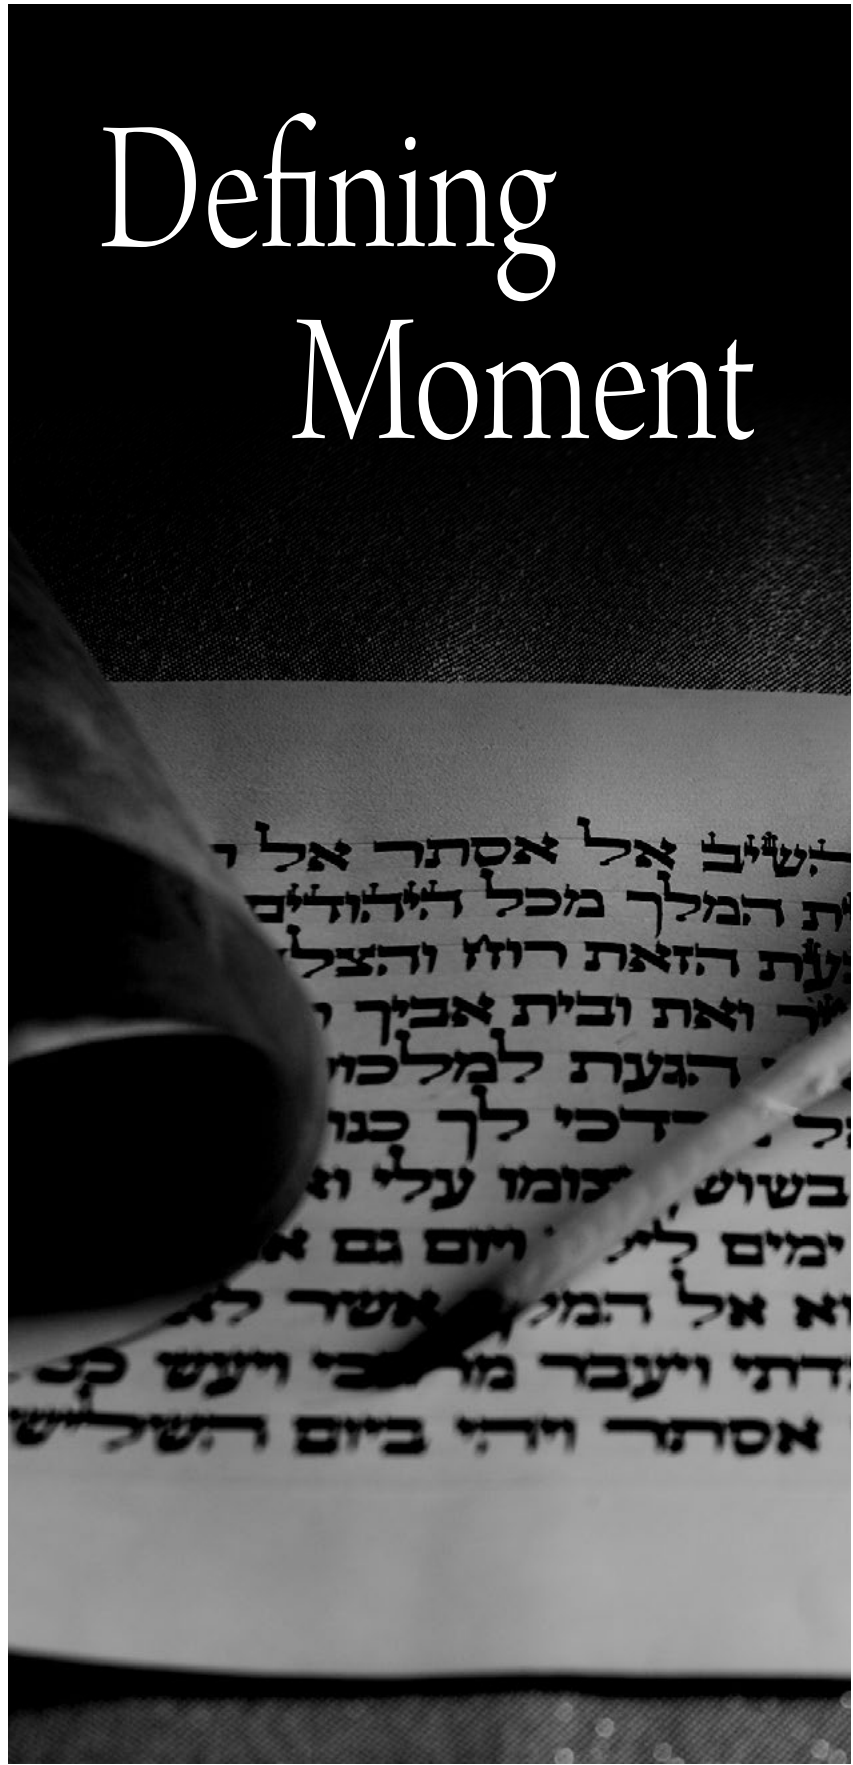 Defining
Moment
השיב אל אסתר אל
המלך מכל היהודים
בעת הזאת רוח והצל
ואת ובית אביך
הגעת למלכו
לך כנו
בשוש וצומו עלי
ימים ויום גם
אל המלך אשר לא
דתי ויעבר מרדכי ויעש
אסתר ויהי ביום השלישי